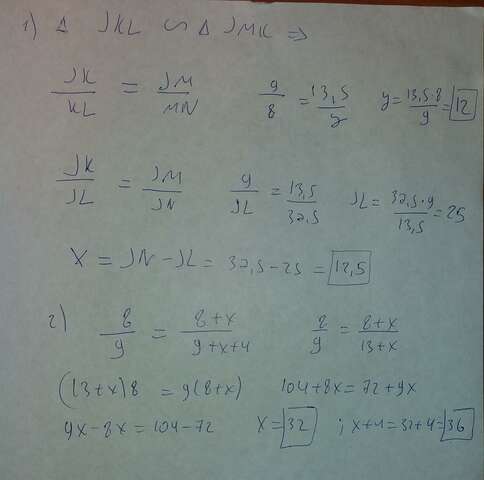 1) Δ JKL ∽ Δ JMK ⇒
JK/KL = JM/MN 9/8 = 13,5/y y = 13,5·8/9 = 12
JK/JL = JM/JN 9/JL = 13,5/32,5 JL = 32,5·9/13,5 = 25
X = JN - JL = 37,5 - 25 = 12,5
2) 8/9 = 8+x/9+x+4 8/9 = 8+x/13+x
(13+x)8 = 9(8+x) 104+8x = 72+9x
9x-8x = 104-72 x = 32 ; x+4 = 32+4 = 36